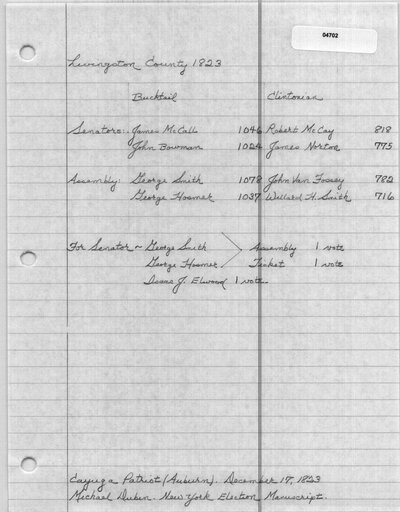 04702
Livingston County 1823
Bucktail Clintonian
Senators: James McCall 1046 Robert McCay 818
John Bowman 1024 James Norton 775
Assembly: George Smith 1078 John Van Fossey 782
George Hosmer 1037 Willard H. Smith 716
For Senator ~ George Smith Assembly 1 vote
George Hosmer Ticket 1 vote
Isaac J. Elwood 1 vote
Cayuga Patriot (Auburn). December 17, 1823
Michael Dubin. New York Election Manuscript.